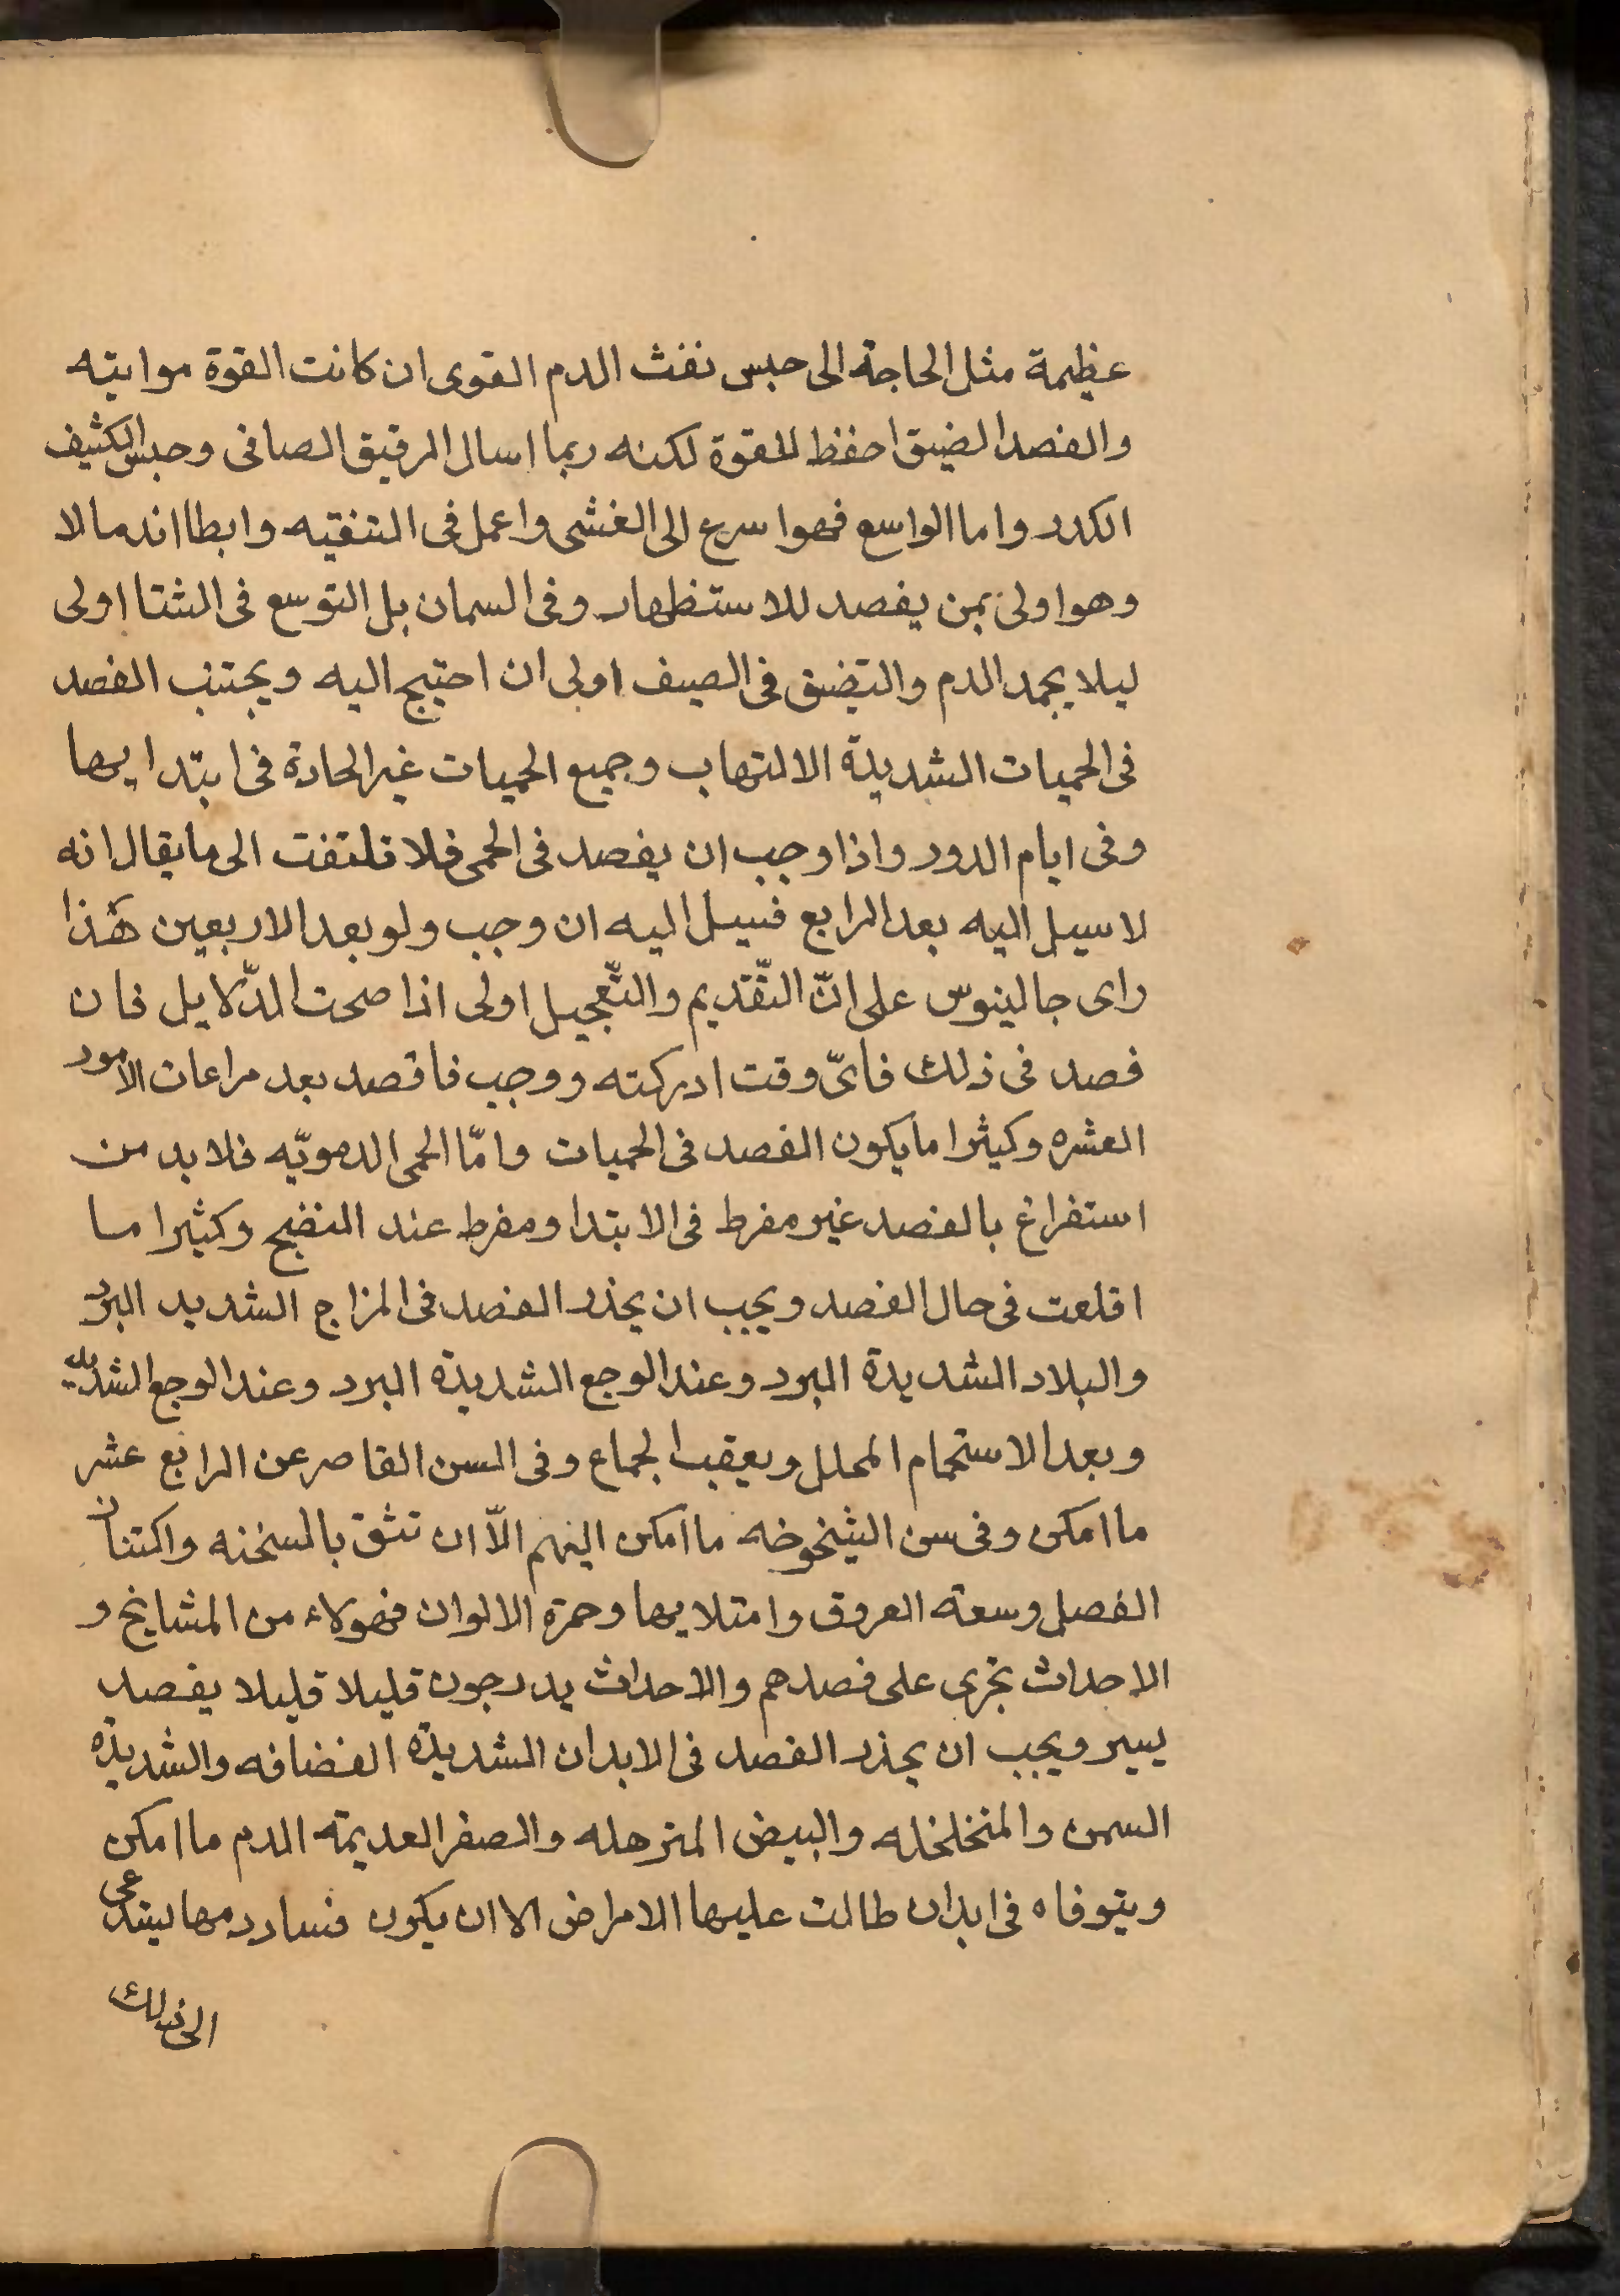 عظيمة مثل الحاجة الى حبس نفث الدم القوى ان كانت القوة مواتيه
والفصد الضيق احفظ للقوة لكنه ربما اسال الرقيق الصافى وحبس الكثيف
الكدر واما الواسع فهو اسرع الى الغشى واعمل فى التنقيه وابطا اندمالا
وهو اولى بمن يفصد للاستظهار وفى السمان بل التوسع فى الشتا اولى
ليلا يجمد الدم والتضيق فى الصيف اولى ان احتيج اليه ويجتنب الفصد
فى الحميات الشديدة الالتهاب وجميع الحميات غير الحادة فى ابتدايها
وفى ايام الدور واذا وجب ان يفصد فى الحمى فلا تلتفت الى ما يقال انه
لا سبيل اليه بعد الرابع فسبيل اليه ان وجب ولو بعد الاربعين هذا
راى جالينوس على انّ التّقديم والتّعجيل اولى اذا صحت الدّلايل فان
قصد فى ذلك فاىّ وقت ادركته ووجب فافصد بعد مراعات الامور
العشره وكثيرا ما يكون الفصد فى الحميات وامّا الحمى الدمويّه فلابد من
استفراغ بالفصد غير مفرط فى الابتدا ومفرط عند النضيج وكثيرا ما
اقلعت فى حال الفصد ويجب ان يحذر الفصد فى المزاج الشديد البرد
والبلاد الشديدة البرد وعند الوجع الشديدة البرد وعند الوجع الشديد
وبعد الاستحمام المحلل وبعقب الجماع وفى السن القاصر عن الرابع عشر
ما امكن وفى سن الشيخوخه ما امكن اليهم الّا ان تثق بالسخنه واكتنان
الفصل وسعة العروق وامتلايها وحمرة الالوان فهولاء من المشايخ و
الاحداث تجرى على فصدهم والاحداث يدرجون قليلا قليلا يفصد
يسير ويجب ان يحذر الفصد فى الابدان الشديدة القضافه والشديدة
السمن والمتخلخله والبيض المترهله والصفر العديمة الدم ما امكن
ويتوفاه فى ابدان طالت عليها الامراض الا ان يكون فساد دمها يستدعى
الى ذلك